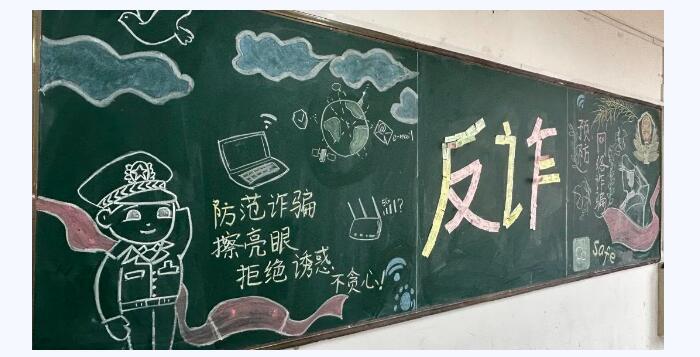 防范诈骗
擦亮眼
拒绝诱惑
不贪心!
e-mail
?
反诈
预防
网络诈骗
Safe